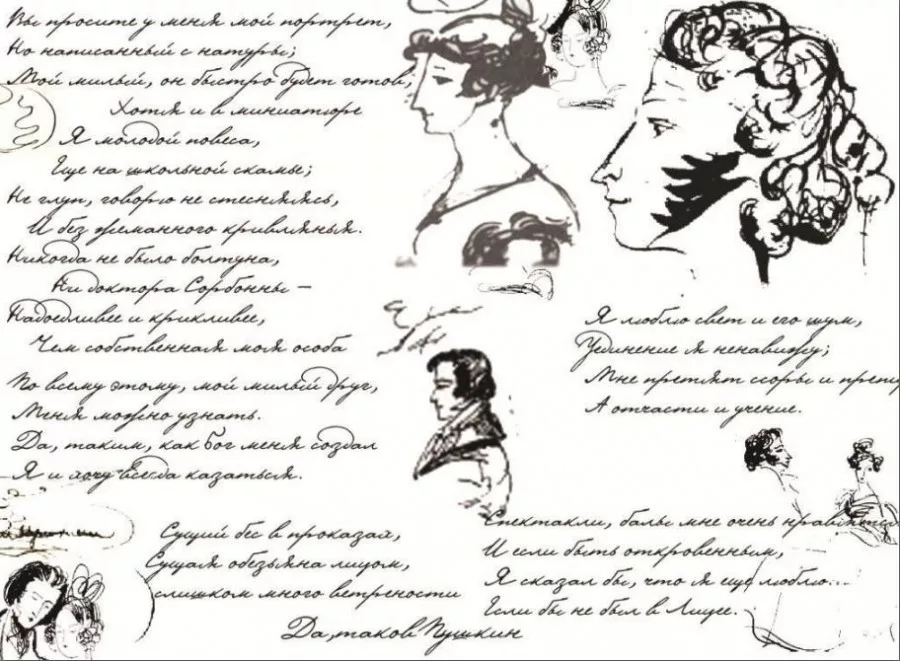 Вы просите у меня мой портрет,
Но написанный с натуры;
Мой милый, он быстро будет готов,
Хотя и в миниатюре
Я молодой повеса,
Еще на школьной скамье;
Не глуп, говорю не стесняясь,
И без жеманного кривлянья.
Никогда не было болтуна,
Ни доктора Сорбонны –
Надоедливее и крикливее,
Чем собственная моя особа
По всему этому, мой милый друг,
Меня можно узнать.
Да, таким, как Бог меня создал
Я и хочу всегда казаться.
Я люблю свет и его шум,
Уединение я ненавижу;
Мне претят ссоры и препи
А отчасти и учение.
Спектакли, балы мне очень нравятся
И если быть откровенным,
Я сказал бы, что я еще люблю...
Если бы не был в Лицее.
Сущий бес в проказах,
Сущая обезьяна лицом,
слишком много ветрености
Да, таков Пушкин